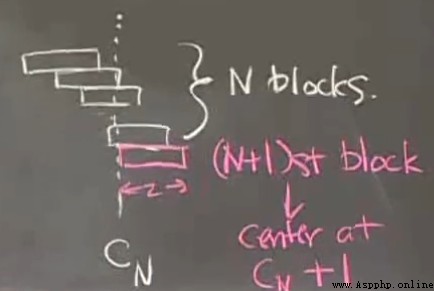 N blocks.
(N+1)st block
2
center at
C_N + 1
C_N
www.Aspphp.online